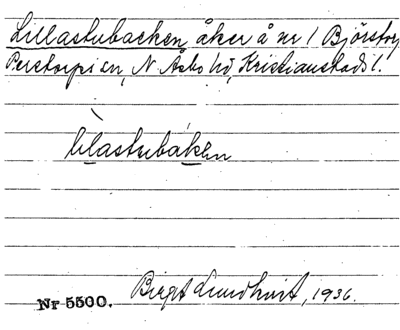 Lillastubacken, åker å nr 1 Björstorp
Perstorps sn, N. Åsbo hd, Kristianstads l.
lilastubaken
Birgit Lundkvist, 1936.
Nr 5500.